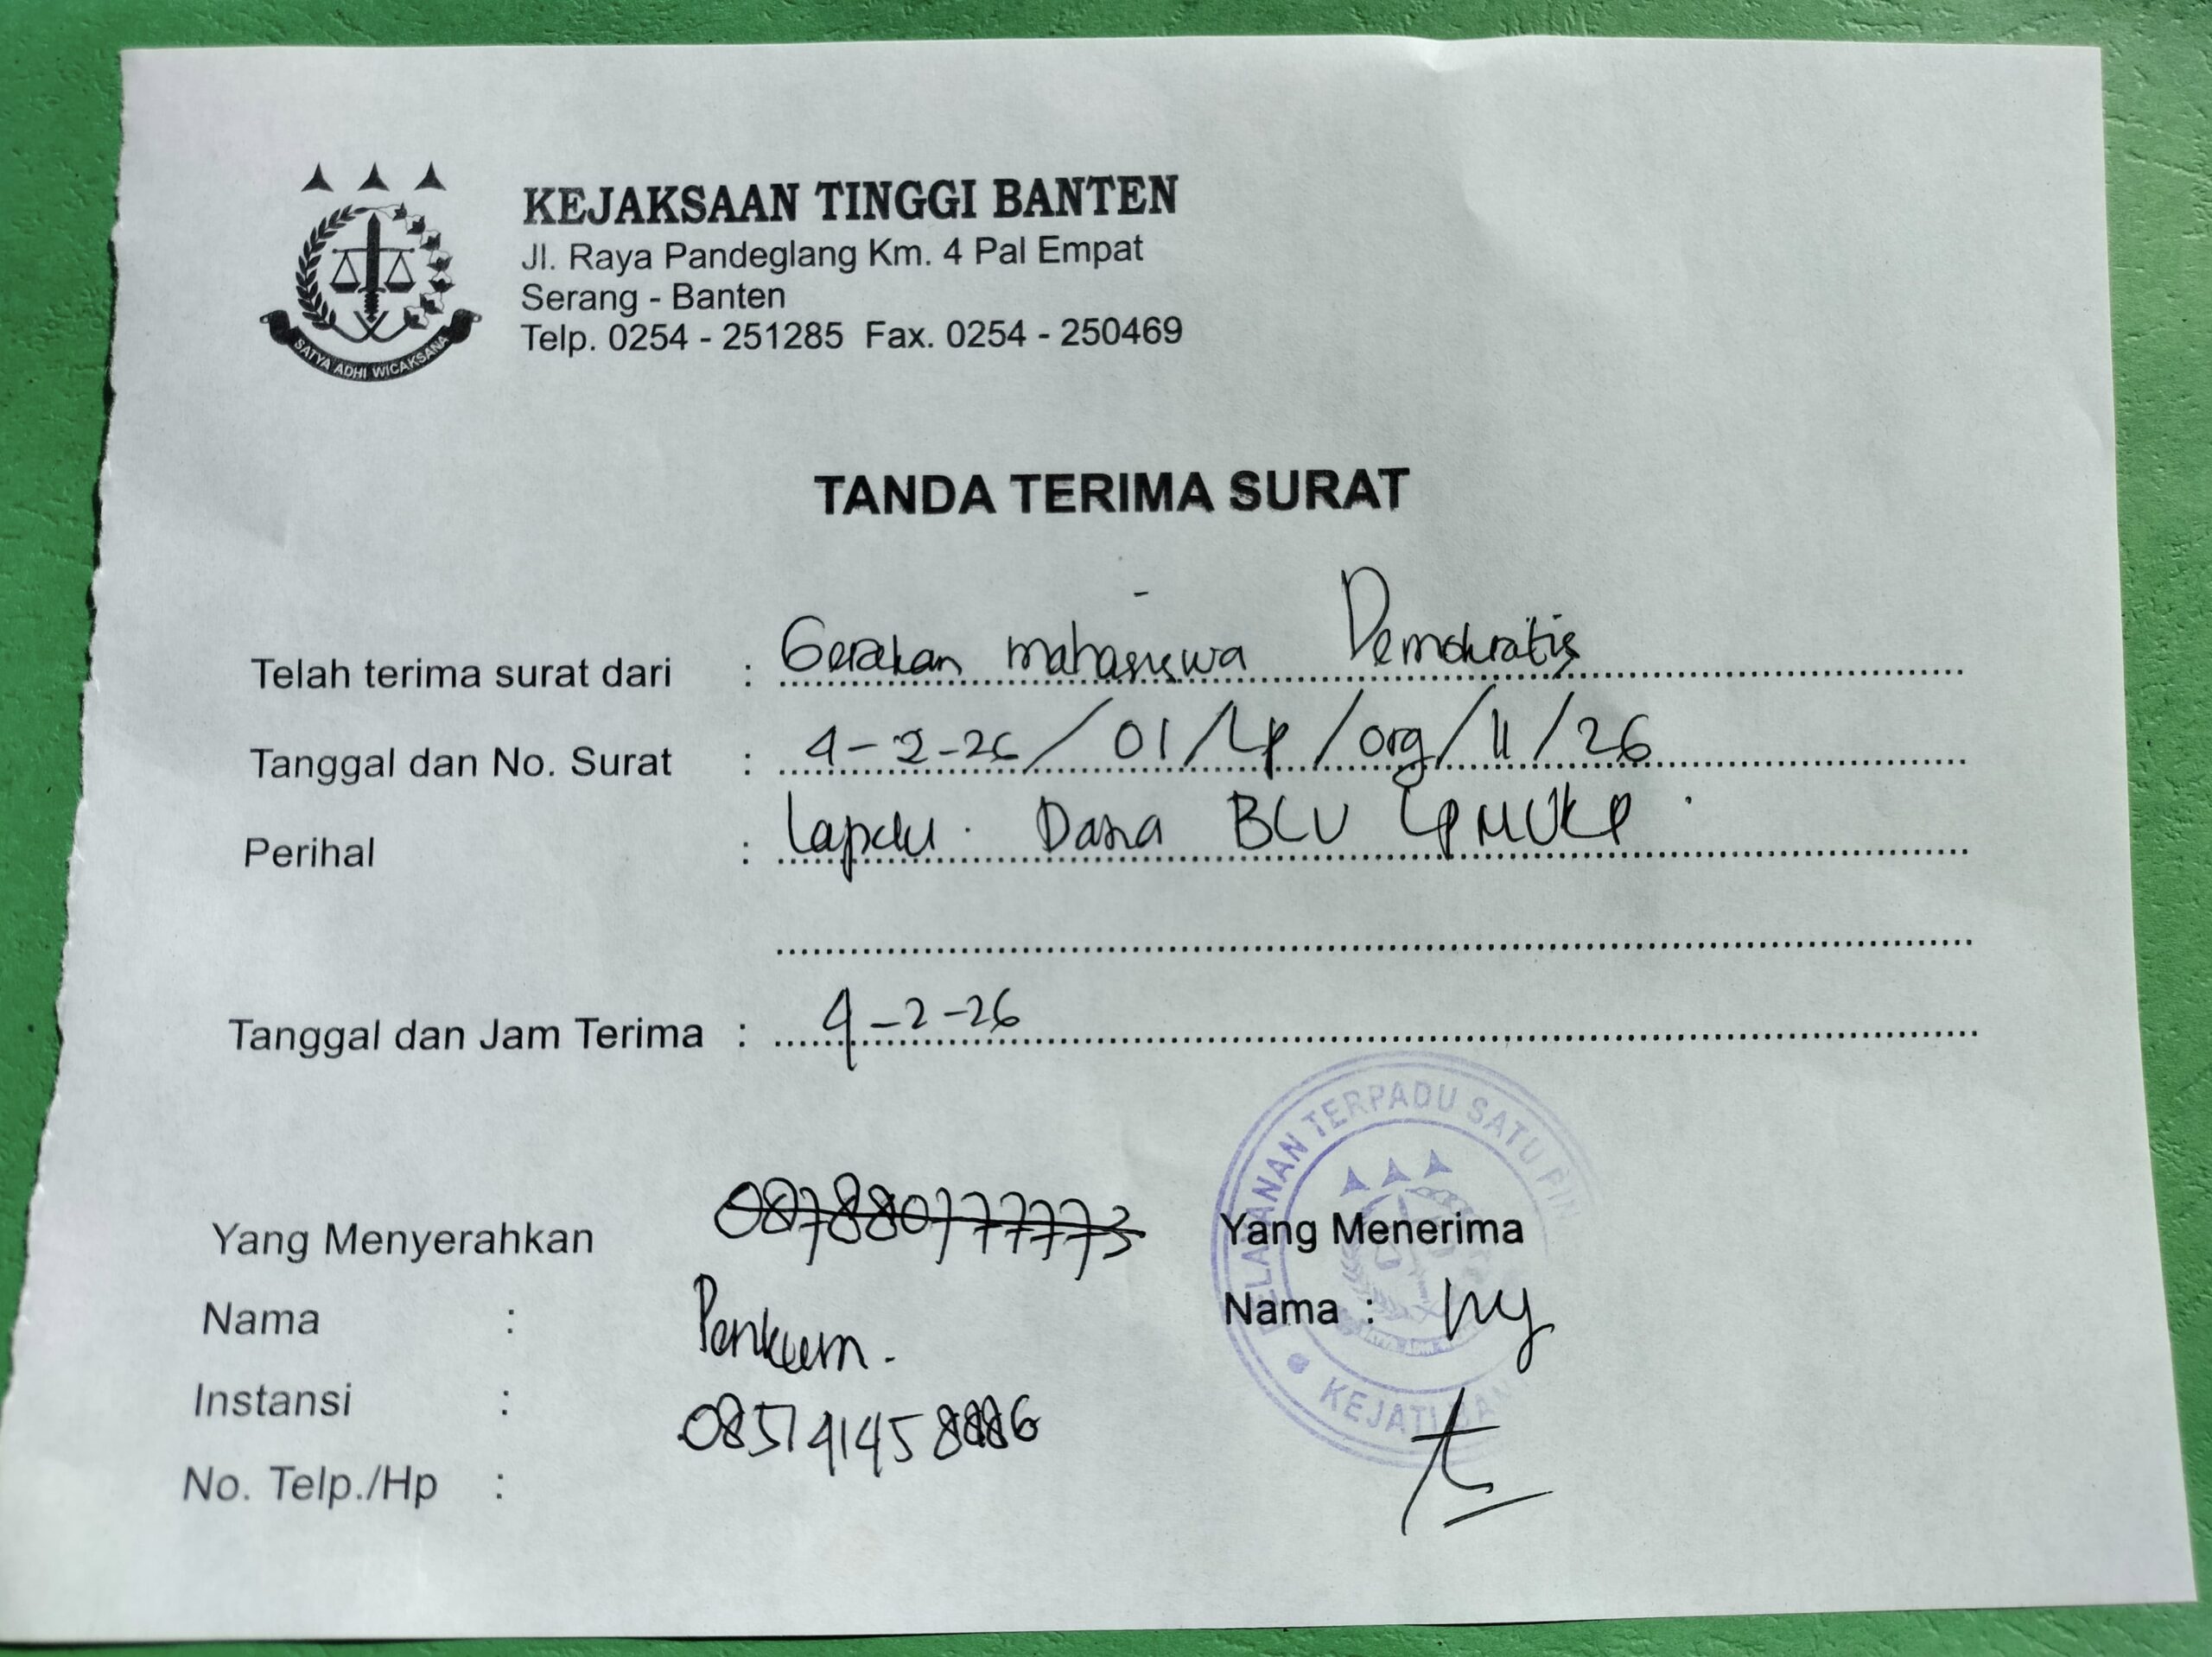 KEJAKSAAN TINGGI BANTEN
Jl. Raya Pandeglang Km. 4 Pal Empat
Serang - Banten
Telp. 0254 - 251285 Fax. 0254 - 250469
SATYA ADHI WICAKSANA
TANDA TERIMA SURAT
Telah terima surat dari : Gerakan mahasiswa Demokratis
Tanggal dan No. Surat : 4-2-26 / 01 / LP / org / II / 26
Perihal : Lapdu. Dana BLU LPMUKP.
Tanggal dan Jam Terima : 4-2-26
PELAYANAN TERPADU SATU PIN
Yang Menyerahkan 087880777773 Yang Menerima
Nama : Penkum. Nama :
Instansi :
No. Telp./Hp :
KEJATI BAN